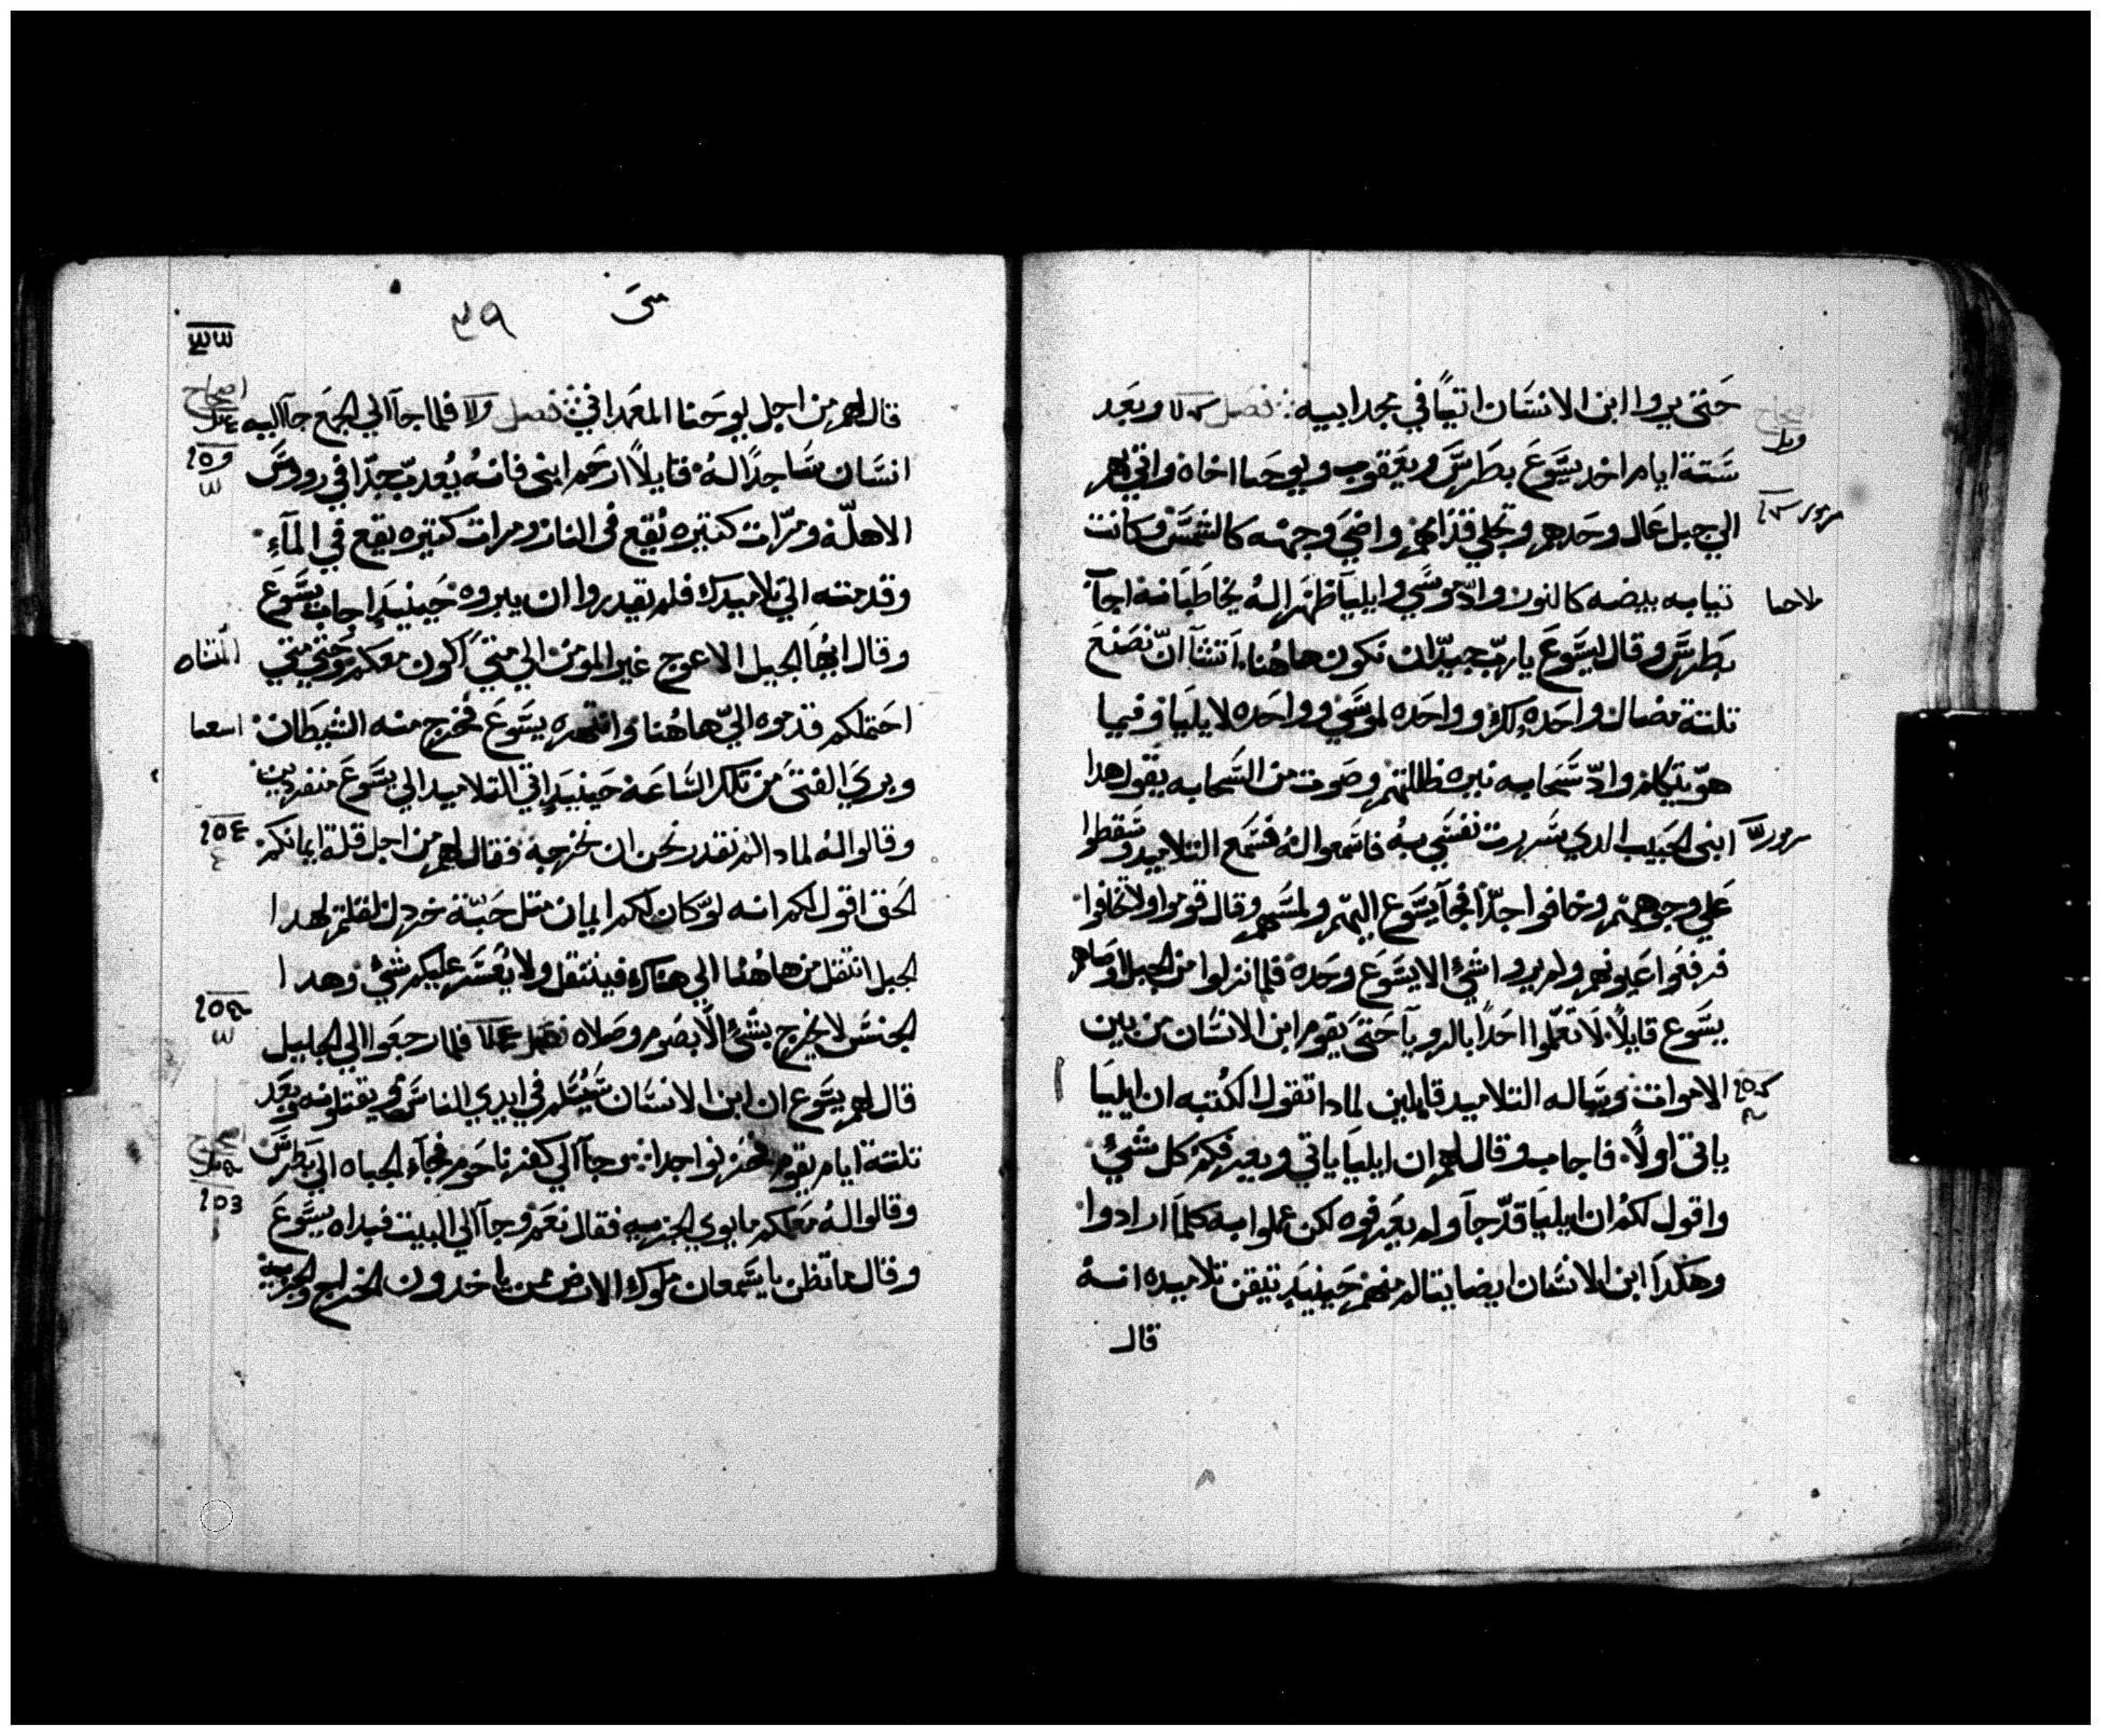 حتي يروا ابن الانسان اتيًا في مجد ابيه فصل وبعد
ستة ايام اخد يسوع بطرس ويعقوب ويوحنا اخاه واتي بهم
الي جبل عال وحدهم وتجلي قدامهم واضي وجهه كالشمس وكانت
تيابه بيضه كالنور وادّ موسي وايليا ظهرا لهُ يخاطبانه اجآ
بطرس وقال ليسوع يارب جيدّ ان نكون هاهُنا اتشآ ان نصنع
تلتة مضال واحده لك وواحده لموسي وواحده لايليا وفيما
هو يتكلم وادّ سحابه نيره ظللتهم وصوت من السحابه يقول هدا
ابني الحبيب الدي سررت نفسي به فاسمعوا لهُ فسمع التلاميد وسقطوا
علي وجوههم وخافوا جدّا فجآ يسوع اليهم ولمسهم وقال قوموا ولا تخافوا
فرفعوا عيونهم ولم يروا شيُ الا يسوع وحده فلما نزلوا من الجبل اوصاهم
يسوع قايلًا لا تعلموا احدًا بالرويآ حتي يقوم ابن الانسان من بين
الاموات وساله التلاميد قايلين لمادا تقول الكتبه ان ايليا
ياتي اولًا فاجاب وقال لهم ان ايليا ياتي ويعرفكم كل شيُ
واقول لكم ان ايليا قدّ جآ ولم يعرفوه لكن عملوا به كلما ارادوا
وهكدا ابن الانسان ايضا يتالم منهم حينيدٍ تيقن تلاميده انهُ
قال
متي
٣٩
قال لهم من اجل يوحنا المعمداني فصل فلما جآ الي الجمع جآ اليه
انسان ساجدًا لهُ قايلًا ارحم ابني فانهُ يُعدب جدّا في رووس
الاهلّة ومرّات كتيره يُقع في النار ومرات كتيره يقع في المآءِ
وقدمته الي تلاميدك فلم يقدروا ان يبروه حينيدٍ اجاب يسوع
وقال ايها الجيل الاعوج غير المومن الي متي اكون معكم وحتي متي
احتملكم قدموه اليّ هاهُنا وانتهره يسوع فخرج منه الشيطان
وبري الفتي من تلك الساعة حينيدٍ اتي التلاميد الي يسوع منفردين
وقالوا لهُ لمادا لم نقدر نحن ان نخرجهُ فقال لهم من اجل قلة ايمانكم
الحق اقول لكم انه لو كان لكم ايمان متل حبّة خردل لقلتم لهدا
الجبل انتقل من هاهُنا الي هناك فينتقل ولا يُعسر عليكم شيُ وهدا
الجنس لا يخرج بشيُ الّا بصوم وصلاه فصل فلما رجعوا الي الجليل
قال لهم يسوع ان ابن الانسان سيُسلم في ايدي الناس ويقتلونه وبعد
تلتة ايام يقوم فحزنوا جدا جآ الي كفرناحوم فجآء الجباه الي بطرس
وقالوا لهُ معلمكم ما يودي الجزيه فقال نعم وجآ الي البيت فبداه يسوع
وقال ما تظن يا سمعان ملوك الارض ممن ياخدون الخراج والجزيه